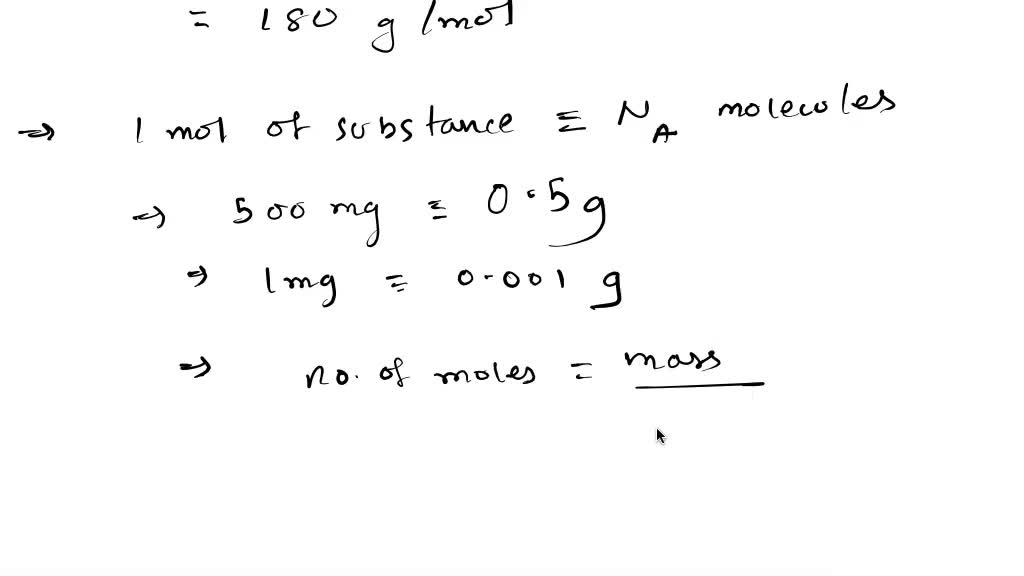 = 180 g/mol
⇒ 1 mol of substance ≡ N_A molecules
⇒ 500 mg ≡ 0.5g
⇒ 1mg ≡ 0.001 g
⇒ no. of moles = mass